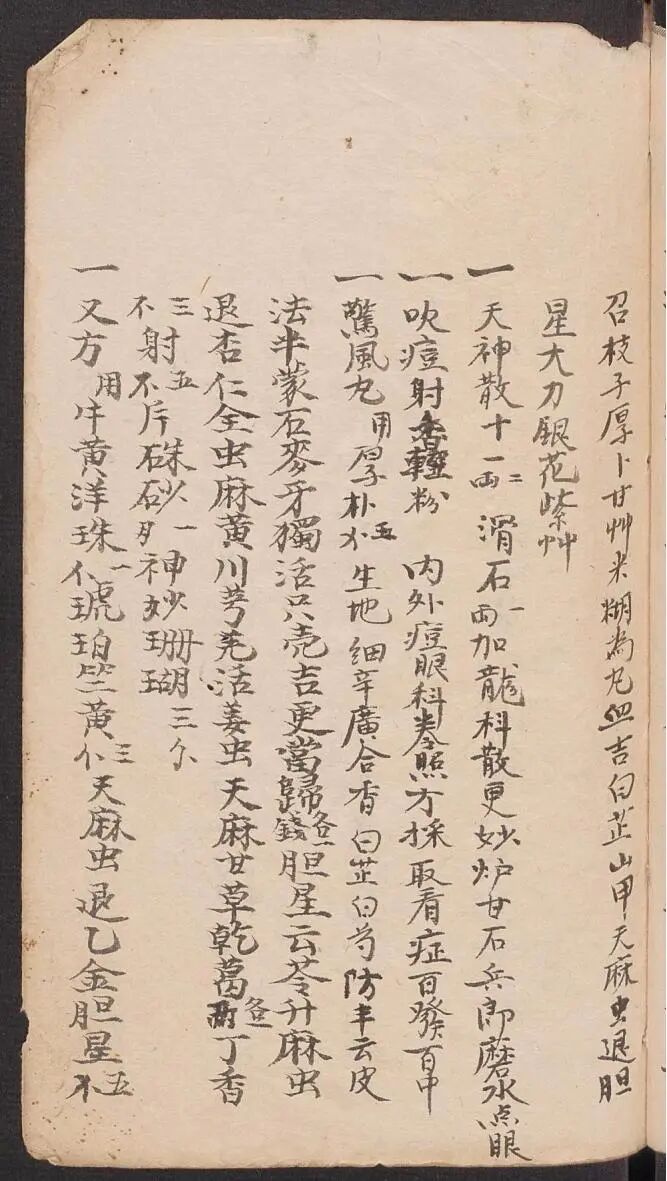 召枝子厚卜甘艸米糊為丸血吉白芷山甲天麻虫退胆
星大力銀花紫艸
一 天神散十一両二 滑石一両加龍科散更妙炉甘石兵郎磨水点眼
一 吹痘射香輕粉 内外痘眼科叁照方採取看症百發百中
一 驚風丸用厚朴五分生地細辛廣合香白芷白芍防丰云皮
法半蒙石麥牙獨活只壳吉更當歸各一錢胆星云苓升麻虫
退杏仁全虫麻黃川芎羌活姜虫天麻甘草乾葛各一両丁香
三不射五不片硃砂一神妙珊瑚三分
一 又方用牛黃洋珠一分琥珀竺黃三分天麻虫退乙金胆星五不